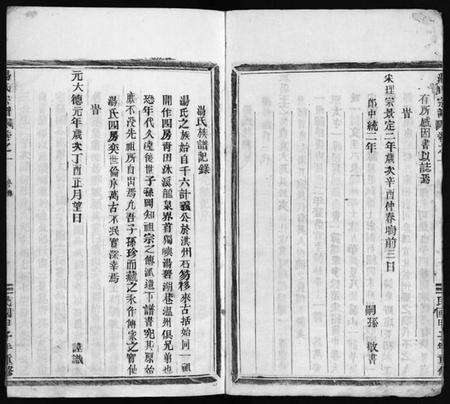 有所感因書以誌焉
旹
宋理宗景定二年歲次辛酉仲春晦前三日
即中統二年
嗣孫 敬書
湯氏族譜記錄
湯氏之族始自千六計議公於洪州石笏移來古括始同一祖
開作四房青田沐溪龍泉界首獨嶼湯碧湖巷溫州俱兄弟也
恐年代久遠後世子孫罔知祖宗之傳派遺下譜書究其原始
庶不沒先祖所自出焉凡吾子孫珍而藏之永作傳家之寶使
湯氏四房奕世倫序萬古不泯實深幸焉
旹
元大德元年歲次丁酉正月望日
謹識
湯氏宗譜卷之一